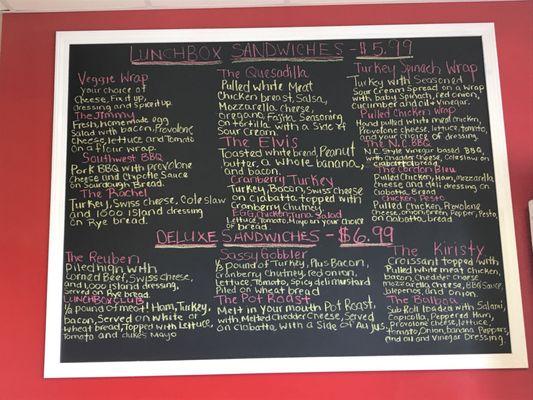 LUNCHBOX SANDWICHES - $5.99
Veggie Wrap
Your choice of
Cheese, Fix it up,
dressing and Spice it up
The Jimmy
Fresh, homemade egg
Salad with bacon, Provolone
Cheese, lettuce and Tomato
on a Flour wrap.
Southwest BBQ
Pork BBQ with provolone
Cheese and Chipotle Sauce
on Sourdough Bread.
The Rachel
Turkey, Swiss cheese, Coleslaw
and 1000 Island dressing
on Rye bread.
The Quesadilla
Pulled white Meat
Chicken breast, Salsa,
Mozzarella cheese,
oregano, Fajita Seasoning
on tortilla with a side of
Sour Cream
The Elvis
Toasted white bread, Peanut
butter, a whole banana,
and bacon.
Cranberry Turkey
Turkey, Bacon, Swiss cheese
on Ciabatta topped with
Cranberry Chutney.
Egg, Chicken, Tuna Salad
Lettuce, Tomato, Mayo on your choice
of bread.
Turkey Spinach Wrap
Turkey with Seasoned
Sour Cream Spread on a wrap
with baby Spinach, red onion,
cucumber and oil + vinegar.
Pulled Chicken Wrap
Hand pulled white meat chicken,
Provolone cheese, lettuce, tomato,
and your choice of dressing.
The N.C. BBQ
N.C. Style Vinegar based BBQ,
with Chedder cheese, Coleslaw on
ciabatta bread
The Cordon Bleu
Pulled Chicken, Ham, mozzarella
Cheese and deli dressing on
Ciabatta Bread
Chicken Pesto
Pulled Chicken, Provolone
Cheese, Onion, Green Pepper, Pesto,
on Ciabatta bread.
DELUXE SANDWICHES - $6.99
The Reuben
Piled high with
Corned Beef, Swiss cheese,
and 1,000 island dressing,
Served on Rye bread
LUNCHBOX CLUB
1/2 pound of meat! Ham, Turkey,
bacon, Served on white or
wheat bread, Topped with Lettuce,
Tomato and dukes Mayo
Sassy Gobbler
1/3 pound of Turkey, Plus Bacon,
Cranberry chutney, red onion,
Lettuce, Tomato, Spicy deli mustard
Piled on wheat bread
The Pot Roast
Melt in your mouth Pot Roast,
with Melted Chedder Cheese, Served
on ciabatta with a side of Au jus.
The Kiristy
Croissant topped with
Pulled white meat chicken,
bacon, Chedder cheese,
mozzarella cheese, BBQ Sauce,
Jalepenos, and onion.
The Balboa
Sub Roll loaded with Salami,
Capicolla, Peppered Ham,
Provolone cheese, lettuce,
tomato, Onion, banana Peppers,
and oil and Vinegar Dressing.